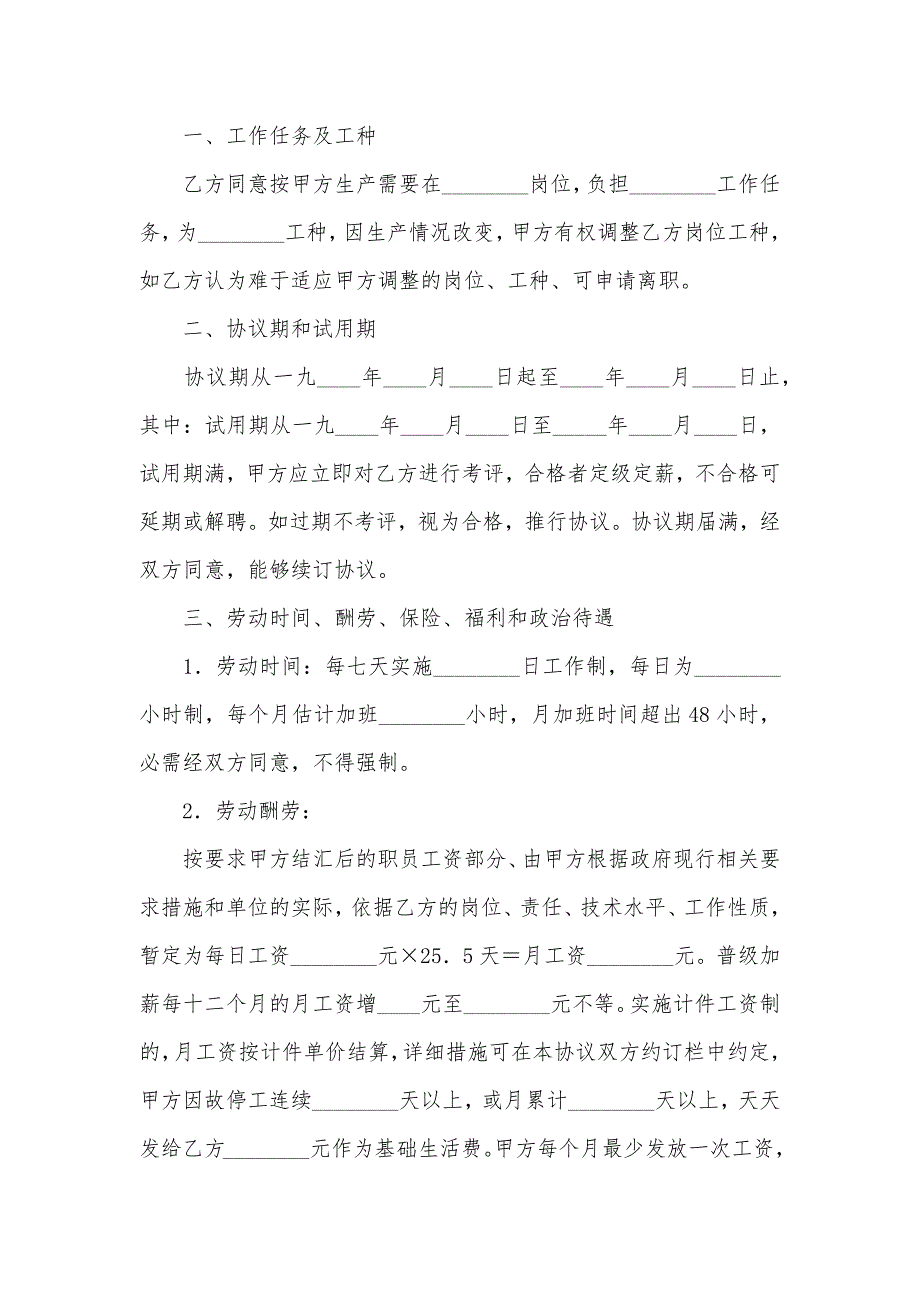 一、工作任务及工种
乙方同意按甲方生产需要在________岗位，负担________工作任
务，为________工种，因生产情况改变，甲方有权调整乙方岗位工种，
如乙方认为难于适应甲方调整的岗位、工种、可申请离职。
二、协议期和试用期
协议期从一九____年____月____日起至____年____月____日止，
其中：试用期从一九____年____月____日至_____年____月____日，
试用期满，甲方应立即对乙方进行考评，合格者定级定薪，不合格可
延期或解聘。如过期不考评，视为合格，推行协议。协议期届满，经
双方同意，能够续订协议。
三、劳动时间、酬劳、保险、福利和政治待遇
1．劳动时间：每七天实施________日工作制，每日为________
小时制，每个月估计加班________小时，月加班时间超出 48 小时，
必需经双方同意，不得强制。
2．劳动酬劳：
按要求甲方结汇后的职员工资部分、由甲方根据政府现行相关要
求措施和单位的实际，依据乙方的岗位、责任、技术水平、工作性质，
暂定为每日工资________元×25．5 天＝月工资________元。普级加
薪每十二个月的月工资增____元至________元不等。实施计件工资制
的，月工资按计件单价结算，详细措施可在本协议双方约订栏中约定，
甲方因故停工连续________天以上，或月累计________天以上，天天
发给乙方________元作为基础生活费。甲方每个月最少发放一次工资，